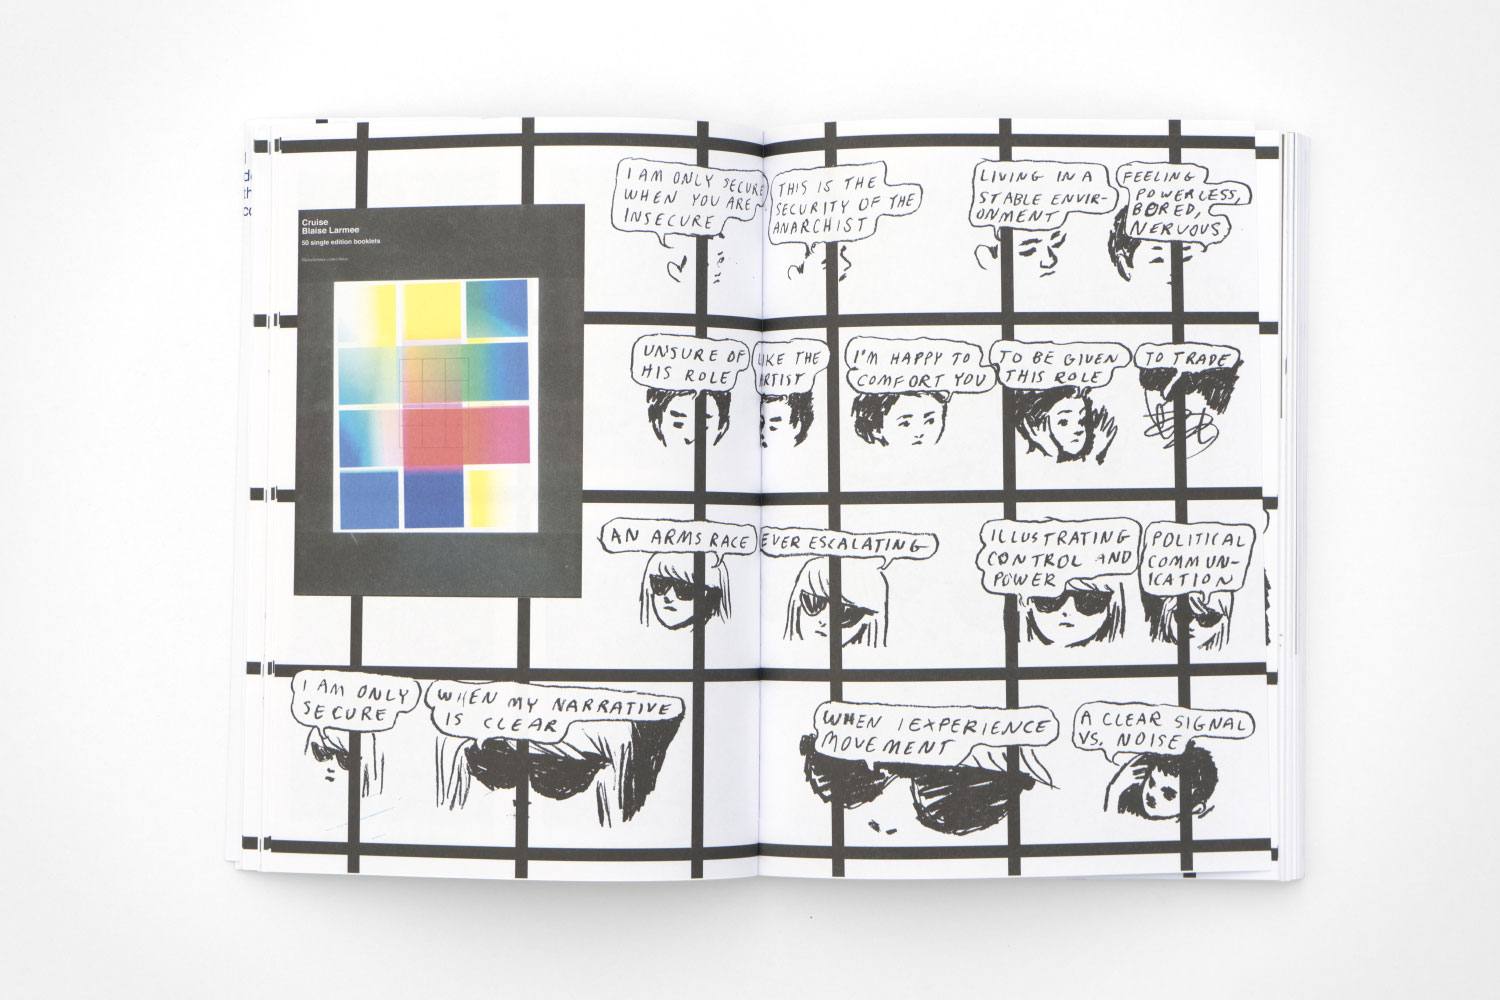 Cruise
Blaise Larmee
50 single edition booklets
I AM ONLY SECURE
WHEN YOU ARE
INSECURE
THIS IS THE
SECURITY OF THE
ANARCHIST
LIVING IN A
STABLE ENVIR-
ONMENT
FEELING
POWERLESS,
BORED,
NERVOUS
UNSURE OF
HIS ROLE
LIKE THE
ARTIST
I'M HAPPY TO
COMFORT YOU
TO BE GIVEN
THIS ROLE
TO TRADE
AN ARMS RACE
EVER ESCALATING
ILLUSTRATING
CONTROL AND
POWER
POLITICAL
COMMUN-
ICATION
I AM ONLY
SECURE
WHEN MY NARRATIVE
IS CLEAR
WHEN I EXPERIENCE
MOVEMENT
A CLEAR SIGNAL
VS. NOISE